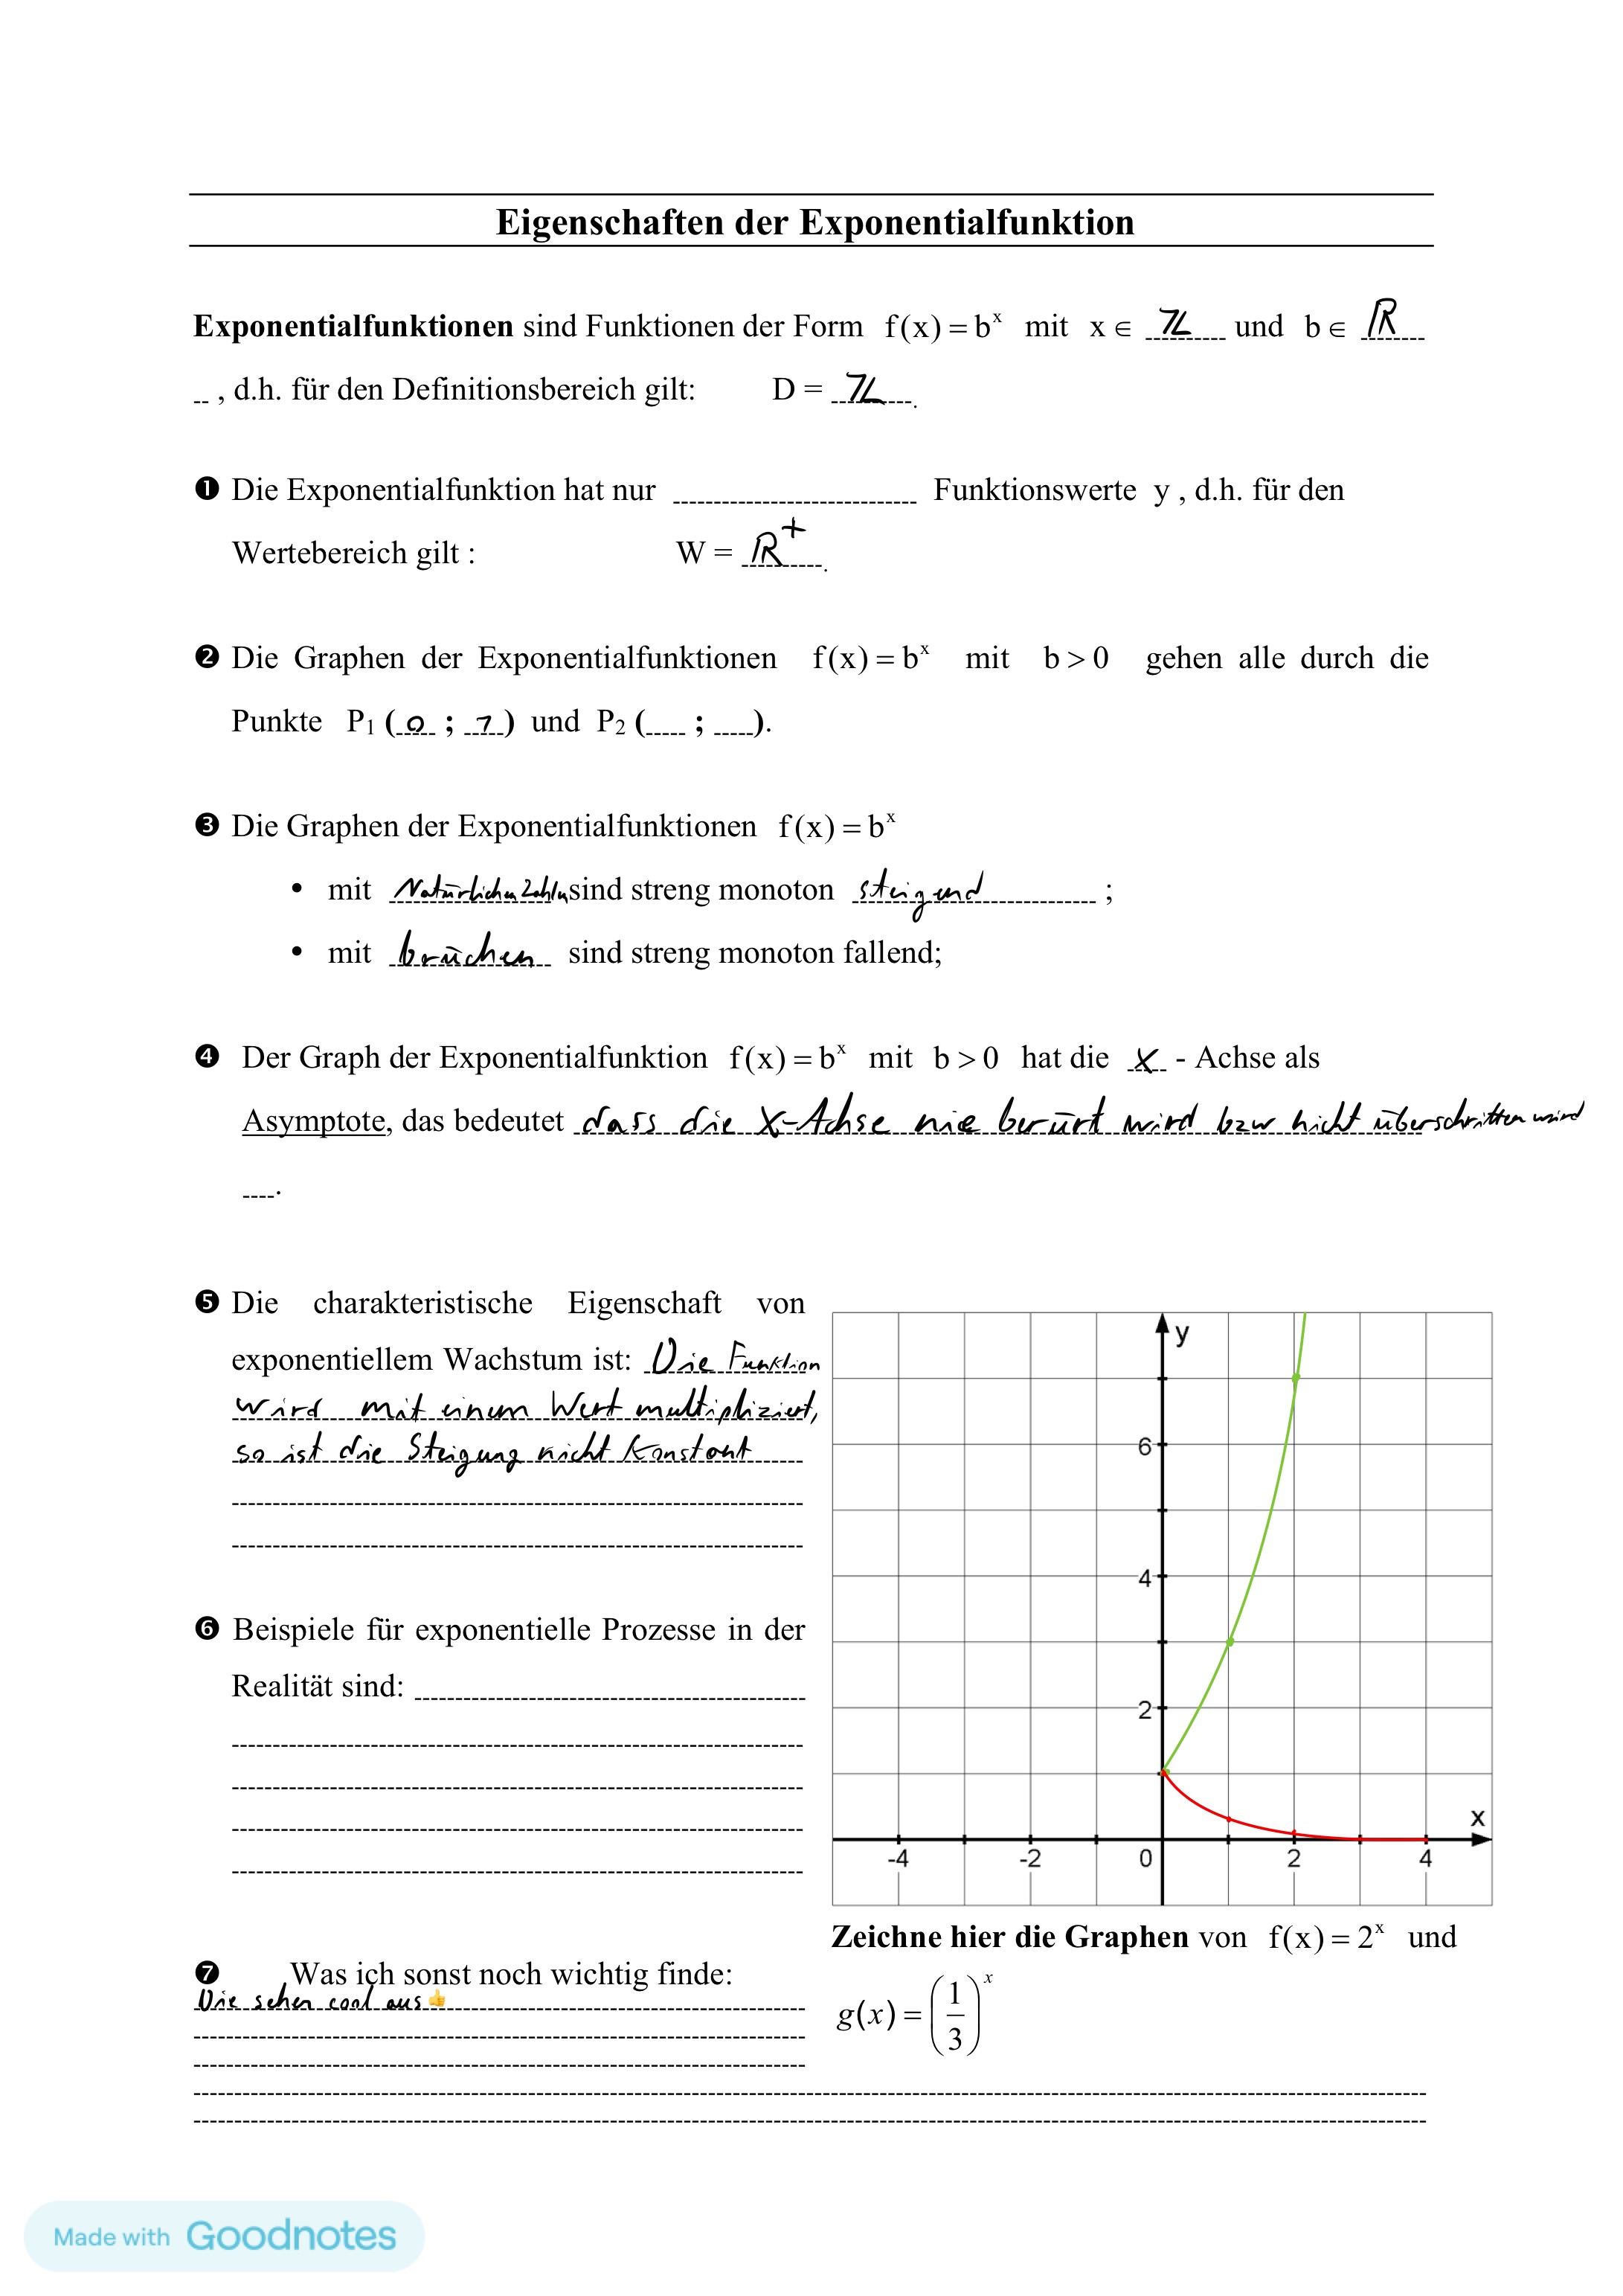 Eigenschaften der Exponentialfunktion
Exponentialfunktionen sind Funktionen der Form f(x) = bˣ mit x ∈ ℤ und b ∈ ℝ
, d.h. für den Definitionsbereich gilt: D = ℤ.
❶ Die Exponentialfunktion hat nur Funktionswerte y , d.h. für den
Wertebereich gilt : W = ℝ⁺.
❷ Die Graphen der Exponentialfunktionen f(x) = bˣ mit b > 0 gehen alle durch die
Punkte P₁ (0 ; 1) und P₂ ( ; ).
❸ Die Graphen der Exponentialfunktionen f(x) = bˣ
• mit Natürlichen Zahln sind streng monoton steigend ;
• mit brüchen sind streng monoton fallend;
❹ Der Graph der Exponentialfunktion f(x) = bˣ mit b > 0 hat die x - Achse als
Asymptote, das bedeutet dass die X-Achse nie berürt wird bzw nicht überschritten wird
.
❺ Die charakteristische Eigenschaft von
exponentiellem Wachstum ist: Die Funktion
wird mit einem Wert multipliziert,
so ist die Steigung nicht Konstant
❻ Beispiele für exponentielle Prozesse in der
Realität sind:
❼ Was ich sonst noch wichtig finde:
Die sehen cool aus👍
y
6
4
2
x
-4 -2 0 2 4
Zeichne hier die Graphen von f(x) = 2ˣ und
g(x) = (1/3)ˣ
Made with Goodnotes